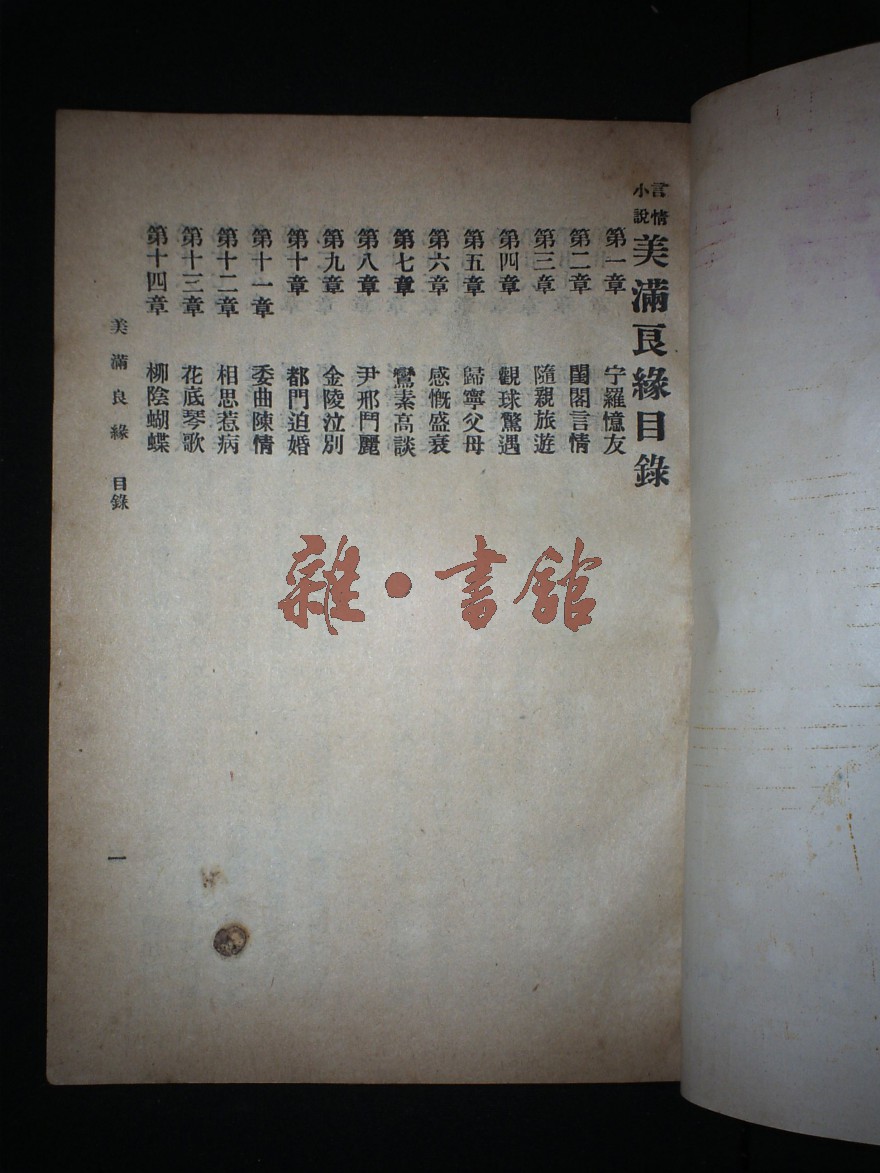 言情小說 美滿良緣目錄
第一章 宇羅憶友
第二章 閨閣言情
第三章 隨親旅遊
第四章 觀球驚遇
第五章 歸寧父母
第六章 感慨盛衰
第七章 鸞素高談
第八章 尹邢鬥麗
第九章 金陵泣別
第十章 都門迫婚
第十一章 委曲陳情
第十二章 相思惹病
第十三章 花底琴歌
第十四章 柳陰蝴蝶
美滿良緣 目錄
一
雜·書館